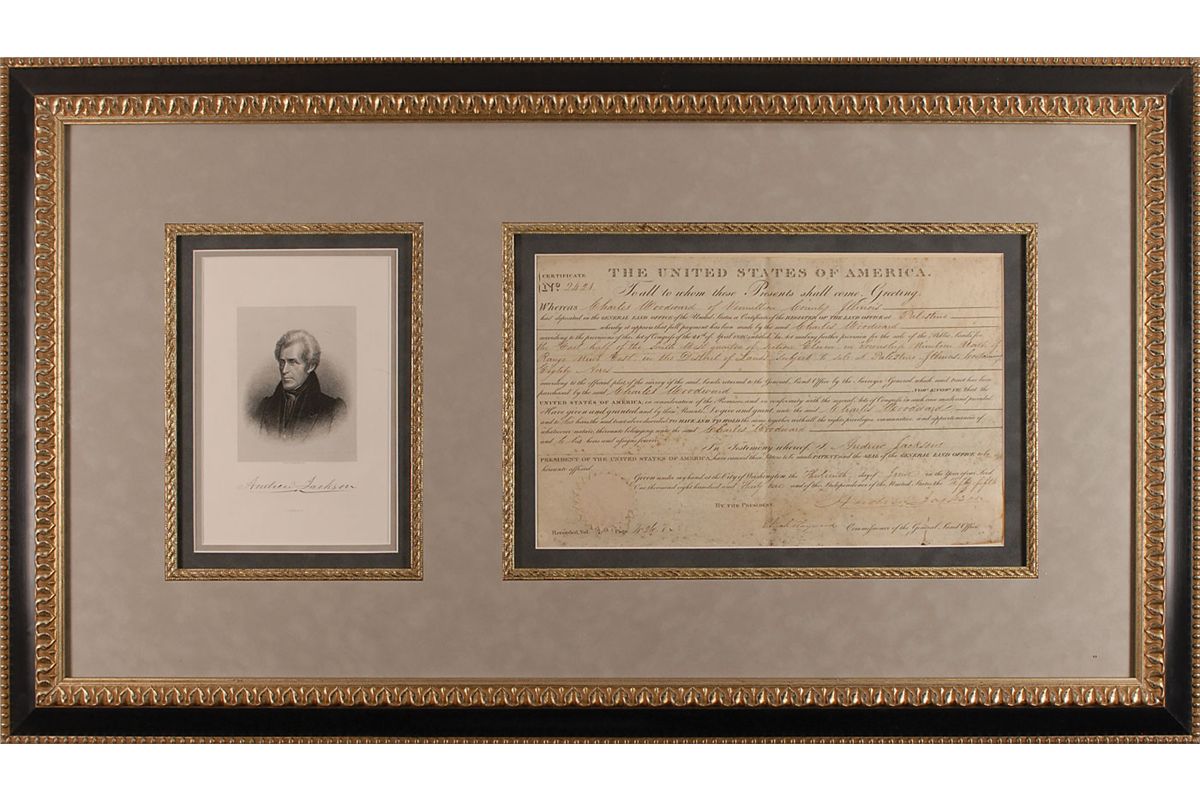 Andrew Jackson
CERTIFICATE
No. 2421
THE UNITED STATES OF AMERICA.
To all to whom these Presents shall come, Greeting.
Whereas Charles Woodward of Vermilion County Illinois
has deposited in the GENERAL LAND OFFICE of the United States, a Certificate of the REGISTER OF THE LAND OFFICE at Palestine
whereby it appears that full payment has been made by the said Charles Woodward
according to the provisions of the Act of Congress of the 24th of April 1820, entitled "An Act making further provision for the sale of the Public Lands" for
the East half of the South West quarter of Section Eleven in Township Nineteen North of
Range Nine East, in the District of Lands subject to sale at Palestine Illinois, Containing
Eighty Acres
according to the official plat of the survey of the said Lands returned to the General Land Office by the Surveyor General, which said tract has been
purchased by the said Charles Woodward NOW KNOW YE that the
UNITED STATES OF AMERICA, in consideration of the Premises, and in conformity with the several Acts of Congress in such case made and provided
Have given and granted and by these Presents Do give and grant, unto the said Charles Woodward
and to his heirs, the said tract above described TO HAVE AND TO HOLD the same, together with all the rights, privileges, immunities, and appurtenances of
whatsoever nature, thereunto belonging, unto the said Charles Woodward
and to his heirs and assigns forever.
In Testimony whereof, I, Andrew Jackson
PRESIDENT OF THE UNITED STATES OF AMERICA, have caused these Letters to be made PATENT and the SEAL of the GENERAL LAND OFFICE to be
hereunto affixed.
Given under my hand at the City of Washington the day of in the Year of our Lord
One thousand eight hundred and thirty one and of the Independence of the United States the fifty fifth
BY THE PRESIDENT Andrew Jackson
Commissioner of the General Land Office
Recorded, Vol. Page 426